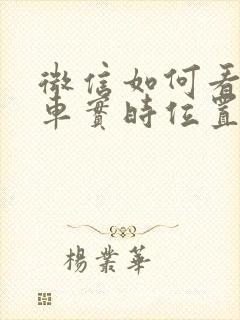 微信如何看
車實時位置
楊業華